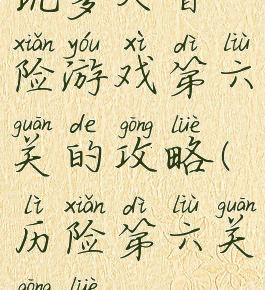 xiǎn yóu xì dì liù
险游戏第六
guān de gōng lüè
关的攻略(
lì xiǎn dì liù guān
历险第六关
gōng lüè